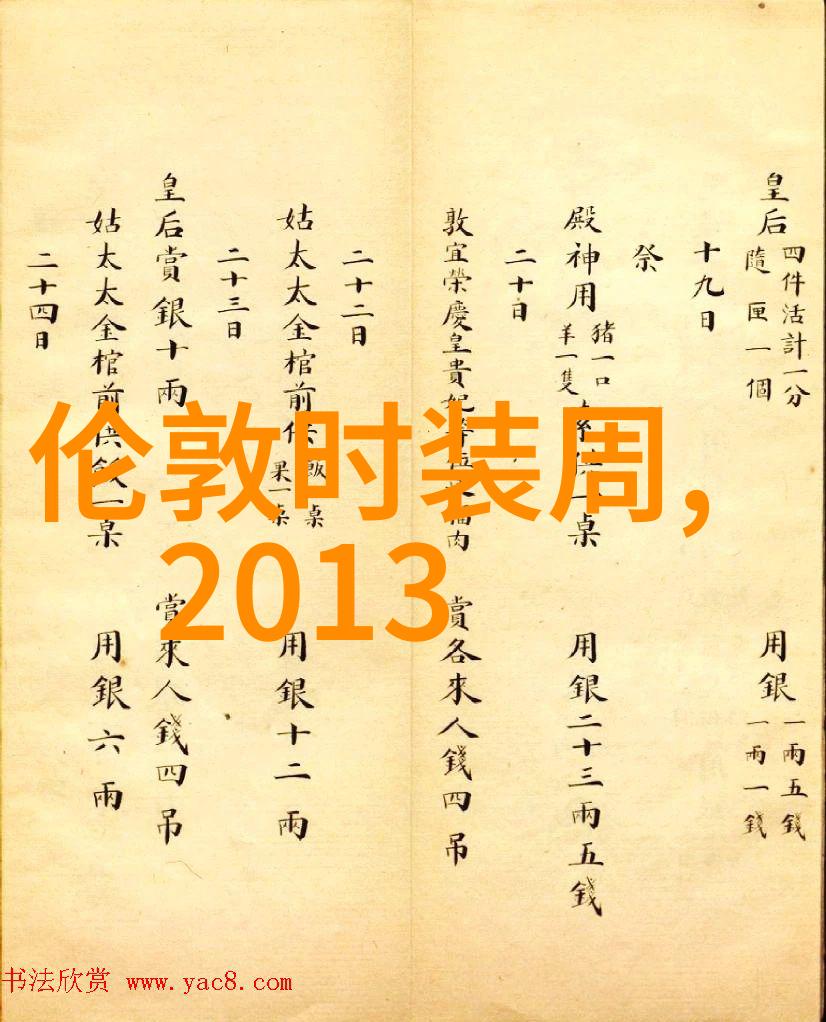 皇后 四件活計一分
隨匣一個
用銀 一兩五錢
一兩一錢
十九日
祭
殿神用 豬一口
羊一隻
桌
用銀二十三兩五錢
二十日
敦宜榮慶皇貴妃
肉
賞各來人錢四吊
二十二日
姑太太金棺前供 飯 桌
果一桌
用銀十二兩
二十三日
皇后賞銀十兩
賞來人錢四吊
姑太太金棺前供飯一桌
用銀六兩
二十四日
伦敦时装周,
2013
书法欣赏 www.yac8.com